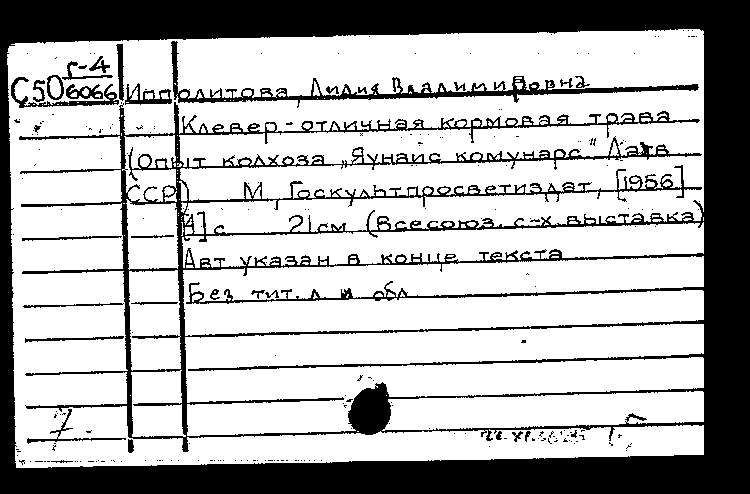 Г-4
С50 6066 Ипполитова, Лидия Владимировна
Клевер - отличная кормовая трава
(Опыт колхоза „Яунаис комунарс" Латв
ССР) М, Госкультпросветиздат, [1956]
[4] с 21 см (Всесоюз. с-х выставка)
Авт указан в конце текста
Без тит. л и обл
7